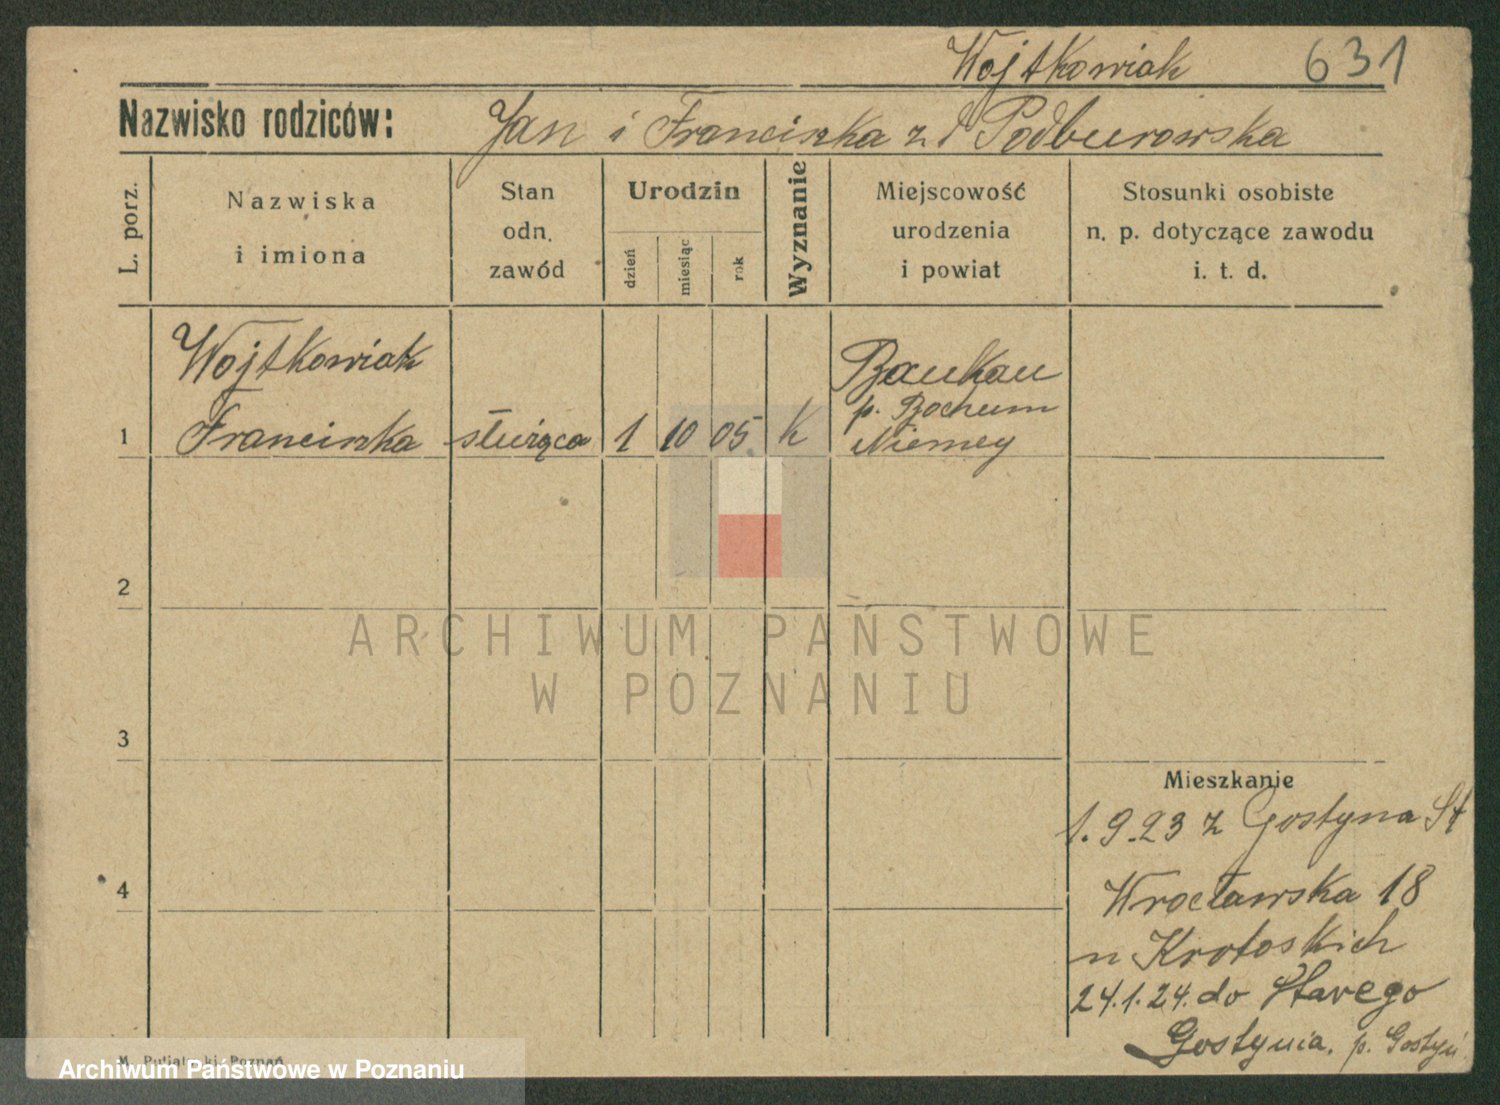 Wojtkowiak 631
Nazwisko rodziców: Jan i Franciszka z d Podburowska
L. porz.
Nazwiska
i imiona
Stan
odn.
zawód
Urodzin
dzień
miesiąc
rok
Wyznanie
Miejscowość
urodzenia
i powiat
Stosunki osobiste
n. p. dotyczące zawodu
i. t. d.
1
Wojtkowiak
Franciszka
służąca
1 10 05 K
Baukau
p. Bochum
Niemcy
2
3
4
ARCHIWUM PAŃSTWOWE
W POZNANIU
Mieszkanie
1.9.23 z Gostyna St
Wrocławska 18
u Krotoskich
24.1.24. do Starego
Gostynia. p. Gostyń
Poznań
Archiwum Państwowe w Poznaniu